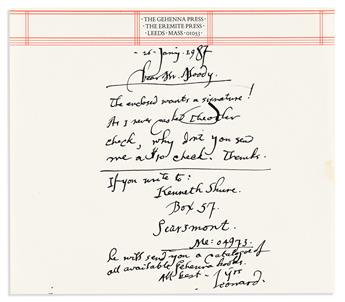 ·THE GEHENNA PRESS·
·THE EREMITE PRESS·
·LEEDS·MASS·01053·
-26-Jan'y. 1987
Dear Mr. Moody.
The enclosed wants a signature!
As I never cashed the other
check, why don't you send
me a $10 check. Thanks.
If you write to:
Kenneth Shure.
Box 57.
Searsmont.
Me: 04973.
he will send you a catalogue of
all available Gehenna books.
All best - Yrs
Leonard.